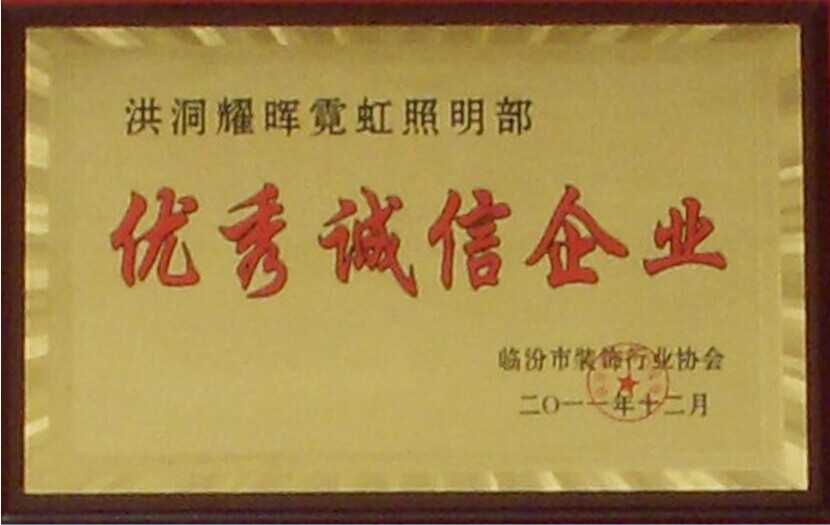 洪洞耀晖霓虹照明部
优秀诚信企业
临汾市装饰行业协会
二〇一一年十二月